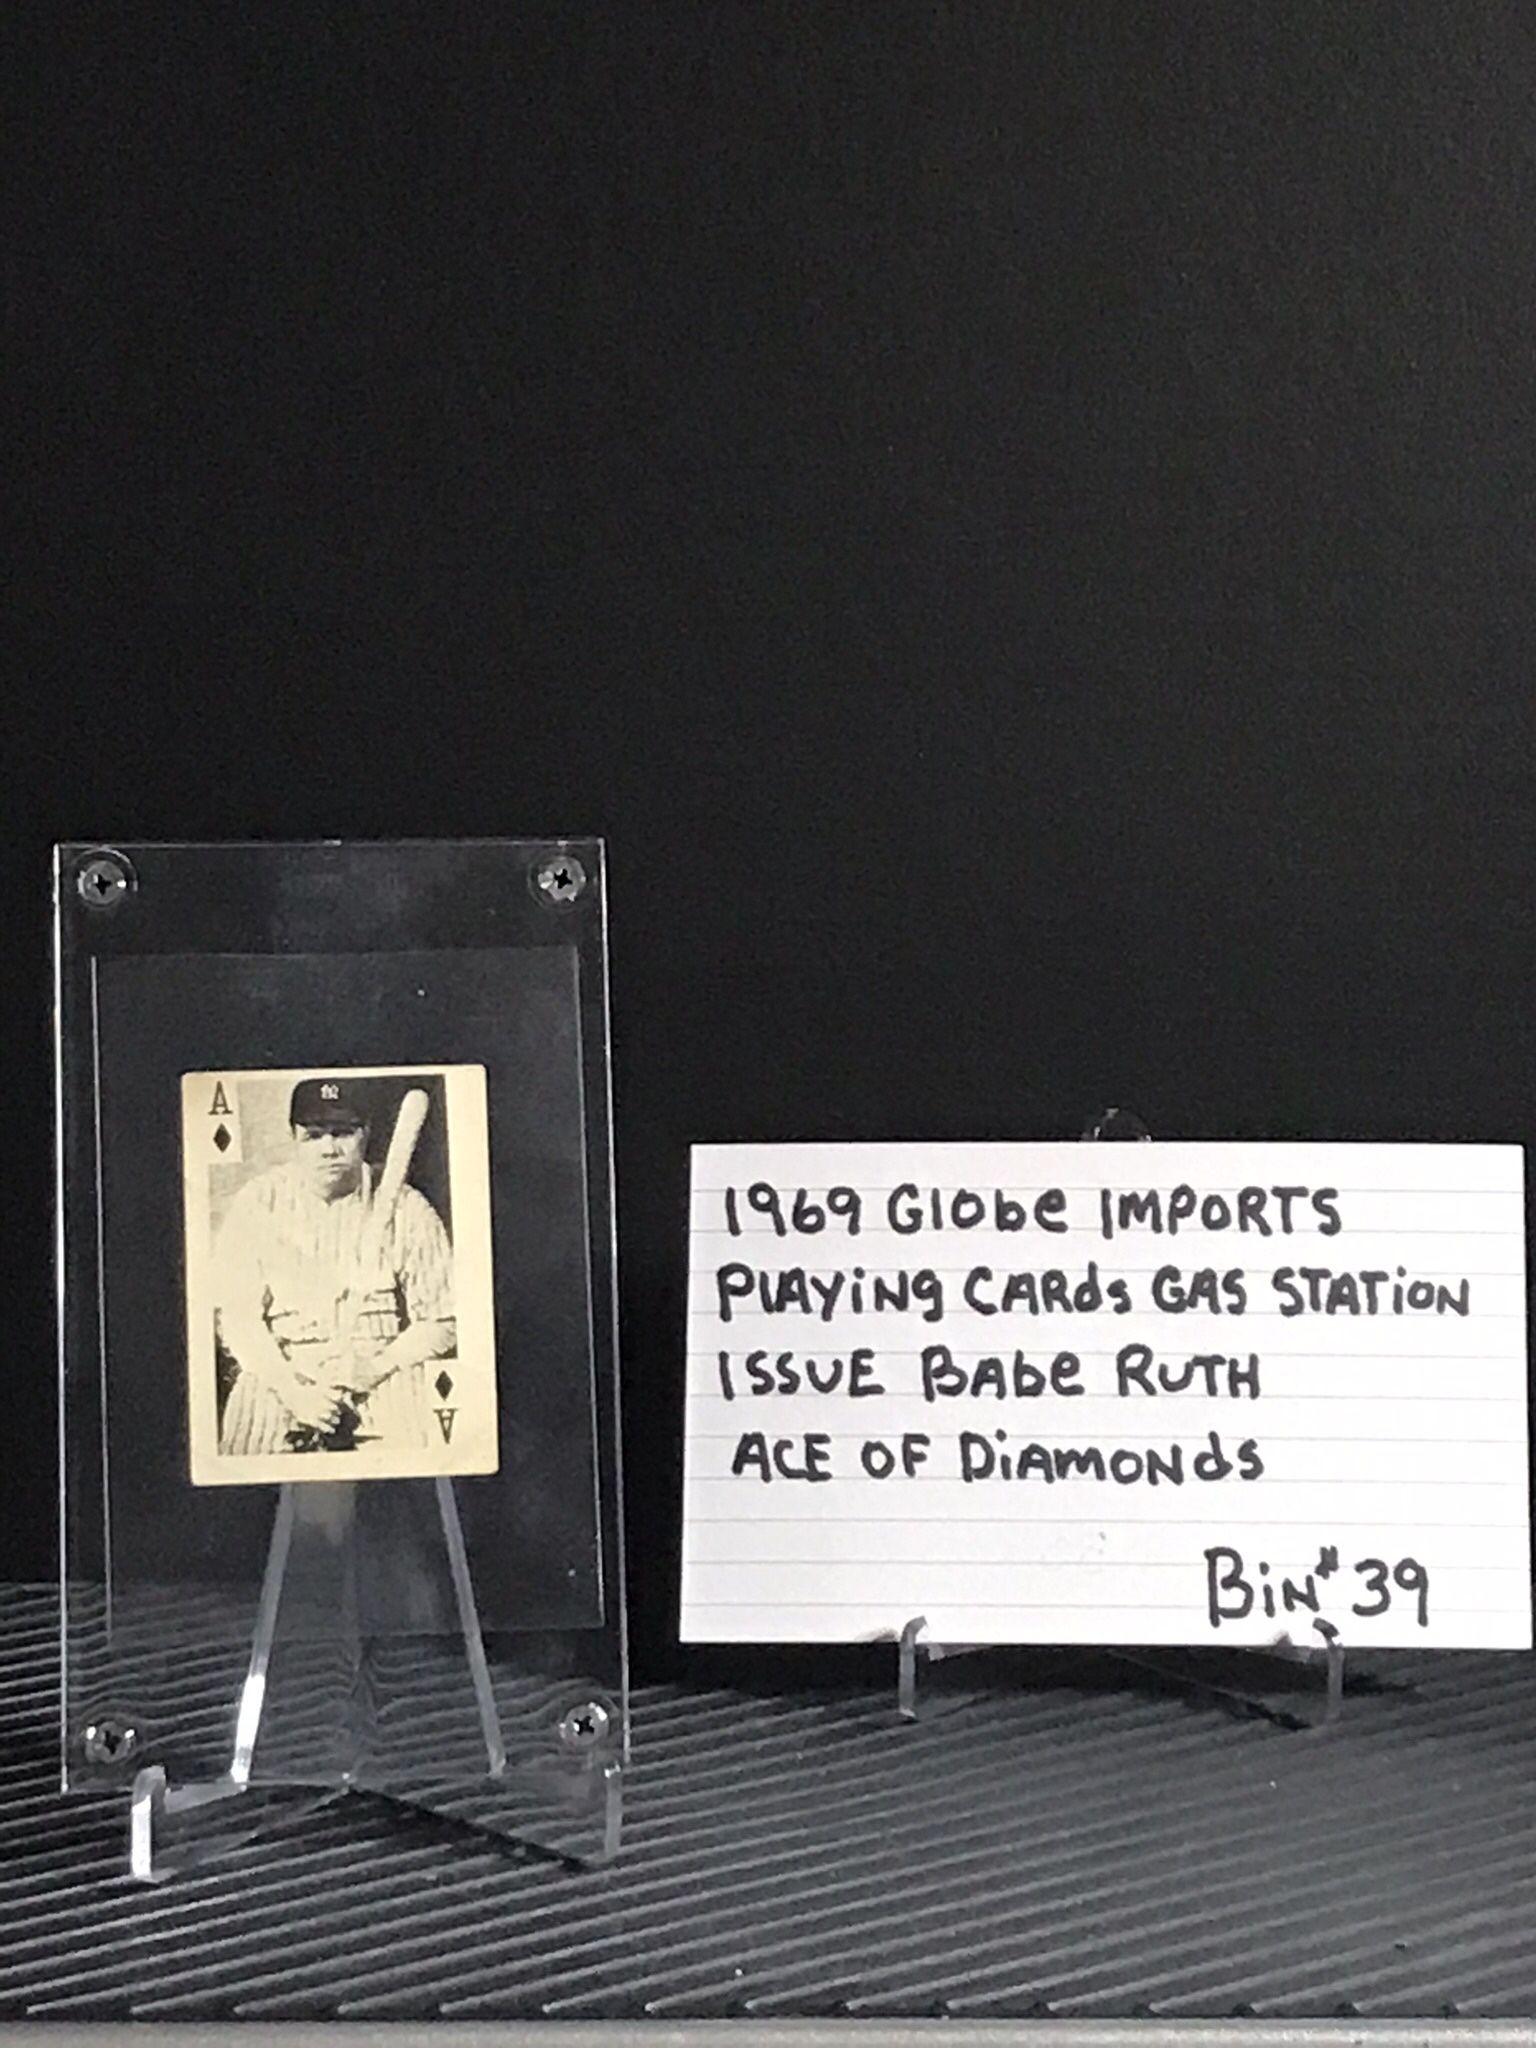 A
NY
A
1969 Globe IMPORTS
PlAYiNg CARds GAS STATiON
ISSUE BAbe RUTH
ACE OF DiAMONds
BiN# 39